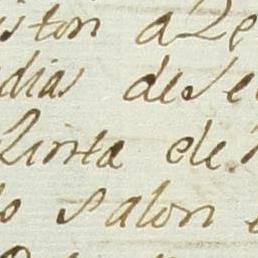 iston a Le
dias de Se
Quinta de
o Salon